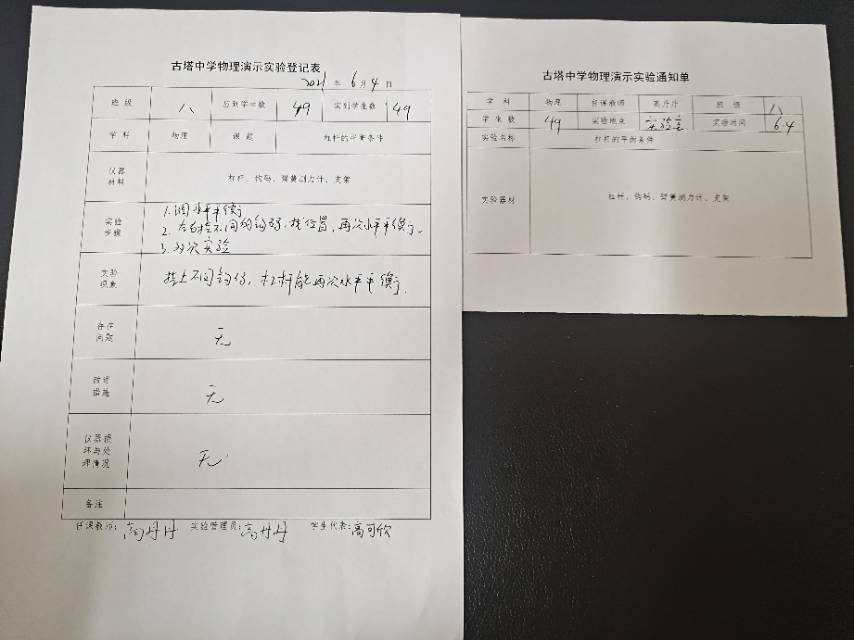 古塔中学物理演示实验登记表
2021 年 6 月 4 日
班 级 八 应到学生数 49 实到学生数 49
学 科 物理 课 题 杠杆的平衡条件
仪器
材料
杠杆、钩码、弹簧测力计、支架
实验
步骤
1. 调水平平衡
2. 左右挂不同的钩码,找位置,再次水平平衡。
3. 多次实验
实验
现象
挂上不同钩码,杠杆能再次水平平衡。
存在
问题
无
改进
措施
无
仪器损
坏与处
理情况
无
备注
任课教师: 高丹丹 实验管理员: 高丹丹 学生代表: 高可欣
古塔中学物理演示实验通知单
学 科 物理 任课教师 高丹丹 班 级 八
学 生 数 49 实验地点 实验室 实验时间 6.4
实验名称 杠杆的平衡条件
实验器材 杠杆、钩码、弹簧测力计、支架